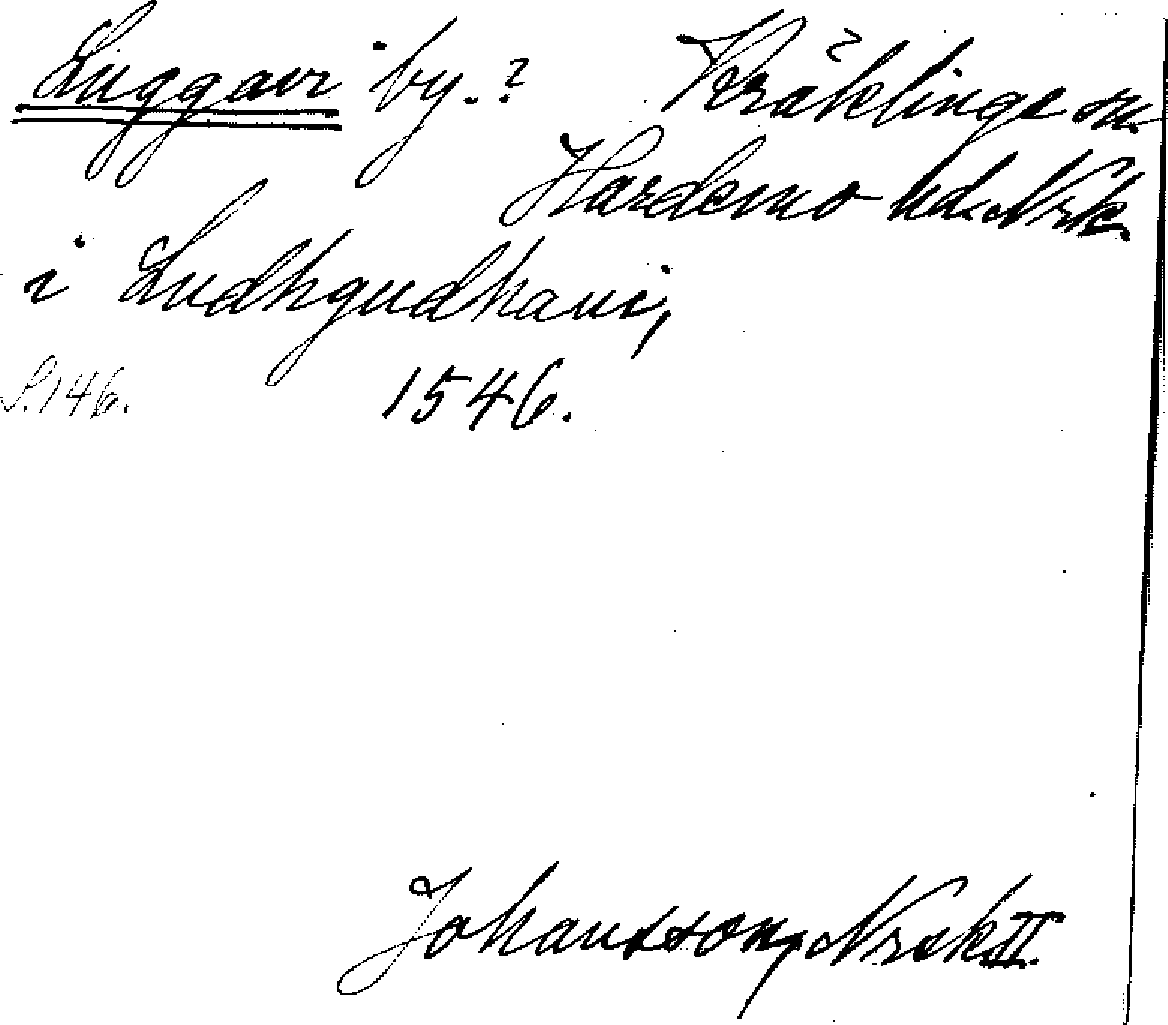 Luggavi by.? Kräklinge sn.
Hardemo hd. Nrk.
i Ludhgudhaui,
S. 146. 1546.
Johansson, Nrke II.